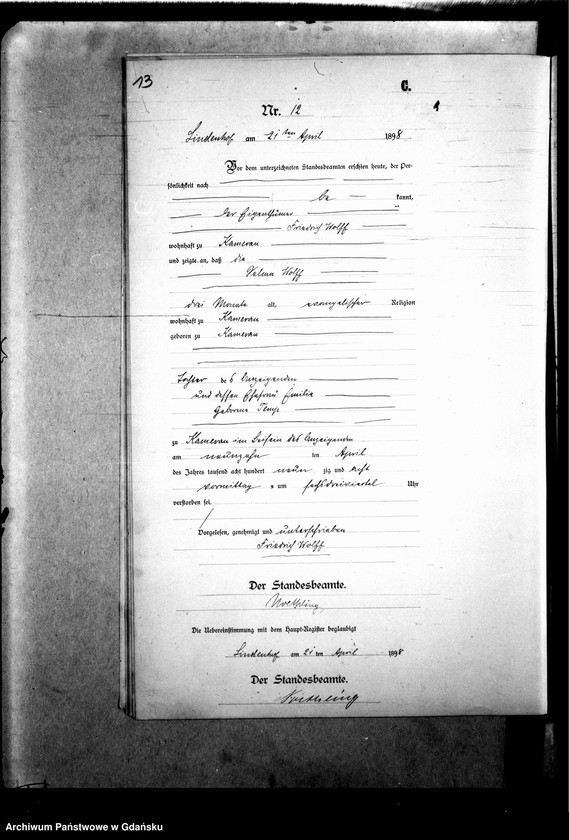 13
C.
Nr. 12
1
Lindenhof am 21ten April 1898
Vor dem unterzeichneten Standesbeamten erschien heute, der Per-
sönlichkeit nach
be kannt,
der Eigenthümer
Friedrich Wolff
wohnhaft zu Kameran
und zeigte an, daß die
Wolff
drei Monate alt, evangelischer Religion
wohnhaft zu Kameran
geboren zu Kameran
Tochter des Anzeigenden
und dessen Ehefrau Emilie
geborene
zu Kameran im Beisein des Anzeigenden
am neunzehn ten April
des Jahres tausend acht hundert neun zig und acht
vormittag s um sechsdreiviertel Uhr
verstorben sei.
Vorgelesen, genehmigt und unterschrieben
Friedrich Wolff
Der Standesbeamte.
Die Uebereinstimmung mit dem Haupt-Register beglaubigt
Lindenhof am 21 ten April 1898
Der Standesbeamte.
Archiwum Państwowe w Gdańsku